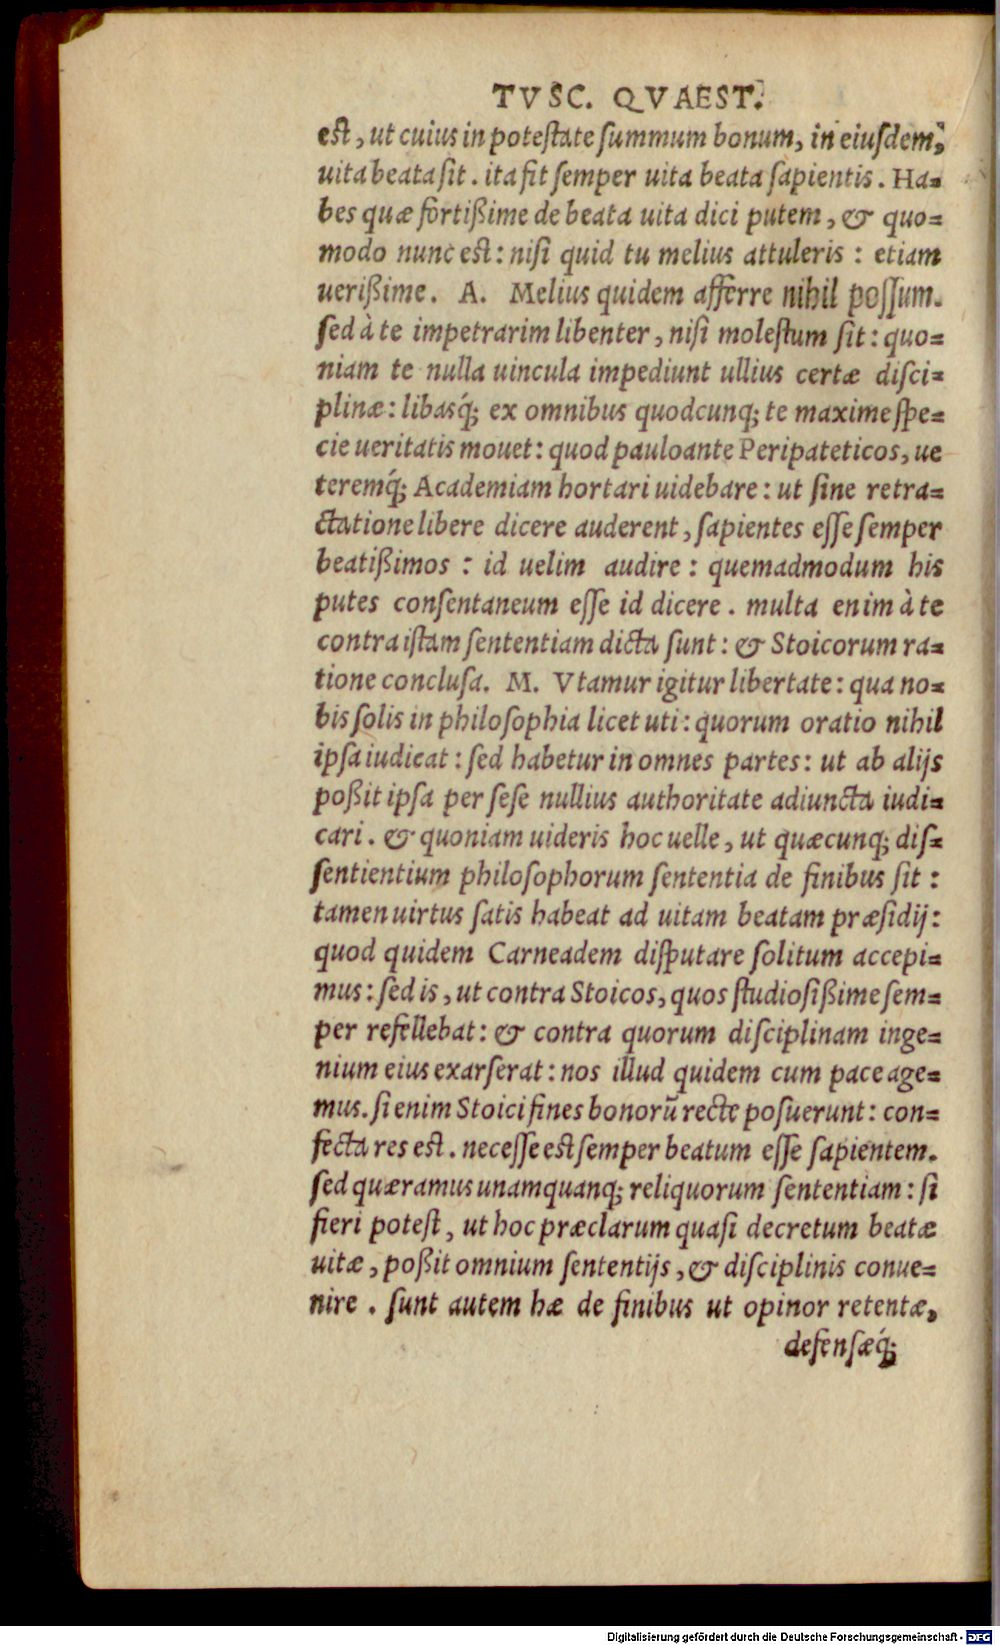 TVSC. QVAEST.
est, ut cuius in potestate summum bonum, in eiusdem,
uita beata sit. ita fit semper uita beata sapientis. Ha=
bes quæ fortißime de beata uita dici putem, & quo=
modo nunc est: nisi quid tu melius attuleris: etiam
uerißime. A. Melius quidem afferre nihil possum.
sed à te impetrarim libenter, nisi molestum sit: quo=
niam te nulla uincula impediunt ullius certæ disci=
plinæ: libasq́; ex omnibus quodcunq; te maxime spe=
cie ueritatis mouet: quod paulo ante Peripateticos, ue
teremq́; Academiam hortari uidebare: ut sine retra=
ctatione libere dicere auderent, sapientes esse semper
beatißimos: id uelim audire: quemadmodum his
putes consentaneum esse id dicere. multa enim à te
contra istam sententiam dicta sunt: & Stoicorum ra=
tione conclusa. M. Vtamur igitur libertate: qua no=
bis solis in philosophia licet uti: quorum oratio nihil
ipsa iudicat: sed habetur in omnes partes: ut ab alijs
poßit ipsa per sese nullius authoritate adiuncta iudi=
cari. & quoniam uideris hoc uelle, ut quæcunq; dis=
sentientium philosophorum sententia de finibus sit:
tamen uirtus satis habeat ad uitam beatam præsidij:
quod quidem Carneadem disputare solitum accepi=
mus: sed is, ut contra Stoicos, quos studiosißime sem=
per refellebat: & contra quorum disciplinam inge=
nium eius exarserat: nos illud quidem cum pace age=
mus. si enim Stoici fines bonorũ recte posuerunt: con=
fecta res est. necesse est semper beatum esse sapientem.
sed quæramus unamquanq; reliquorum sententiam: si
fieri potest, ut hoc præclarum quasi decretum beatæ
uitæ, poßit omnium sententijs, & disciplinis conue=
nire. sunt autem hæ de finibus ut opinor retentæ,
defensæq́;
Digitalisierung gefördert durch die Deutsche Forschungsgemeinschaft - DFG